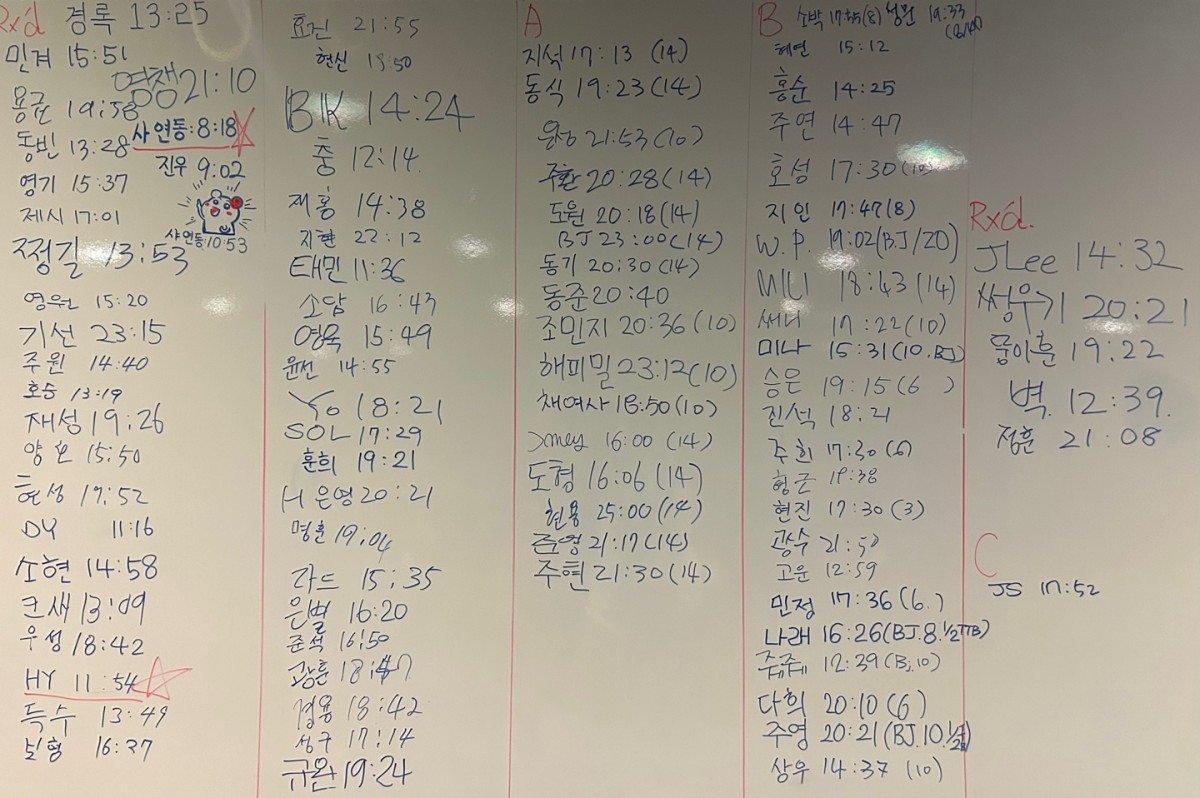 Rx'd 경록 13:25
민겨 15:51
영쟁 21:10
용근 19:58
사연동:8:18
동빈 13:28
진우 9:02
영기 15:37
제시 17:01
샤연동 10:53
쩡길 13:53
영원 15:20
기선 23:15
주원 14:40
호승 13:19
재성 19:26
양 15:50
현성 19:52
DY 11:16
소현 14:58
크새 13:09
우성 18:42
HY 11:54
득수 13:49
보형 16:37
효진 21:55
현신 18:50
BK 14:24
충 12:14
재홍 14:38
지현 22:12
태민 11:36
소담 16:43
영욱 15:49
윤선 14:55
Yo 18:21
SOL 17:29
훈희 19:21
H 은영 20:21
명훈 19:04
라드 15:35
은별 16:20
준석 16:50
광훈 18:47
경용 18:42
성구 17:14
규완 19:24
A
지석 17:13 (14)
동식 19:23 (14)
21:53 (10)
주환 20:28 (14)
도원 20:18 (14)
BJ 23:00 (14)
동기 20:30 (14)
동준 20:40
조민지 20:36 (10)
해피밀 23:12 (10)
채여사 18:50 (10)
16:00 (14)
도형 16:06 (14)
현용 25:00 (14)
준영 21:17 (14)
주현 21:30 (14)
B 소박 (8) 19:33
혜연 15:12
홍순 14:25
주연 14:47
호성 17:30
지인 17:47 (8)
W.P. 17:02 (BJ/20)
MINI 18:43 (14)
써니 17:22 (10)
미나 15:31 (10.BJ)
승은 19:15 (6)
진석 18:21
주희 17:30 (6)
형근 18:38
현진 17:30 (3)
광수 21:50
고운 12:59
민정 17:36 (6.)
나래 16:26 (BJ.8.1/2TTB)
쥬쥬 12:39 (BJ.10)
다희 20:10 (6)
주영 20:21 (BJ.10.
상우 14:37 (10)
Rx'd.
JLee 14:32
쌍우기 20:21
몽아훈 19:22
벽. 12:39.
정훈 21:08
C
JS 17:52